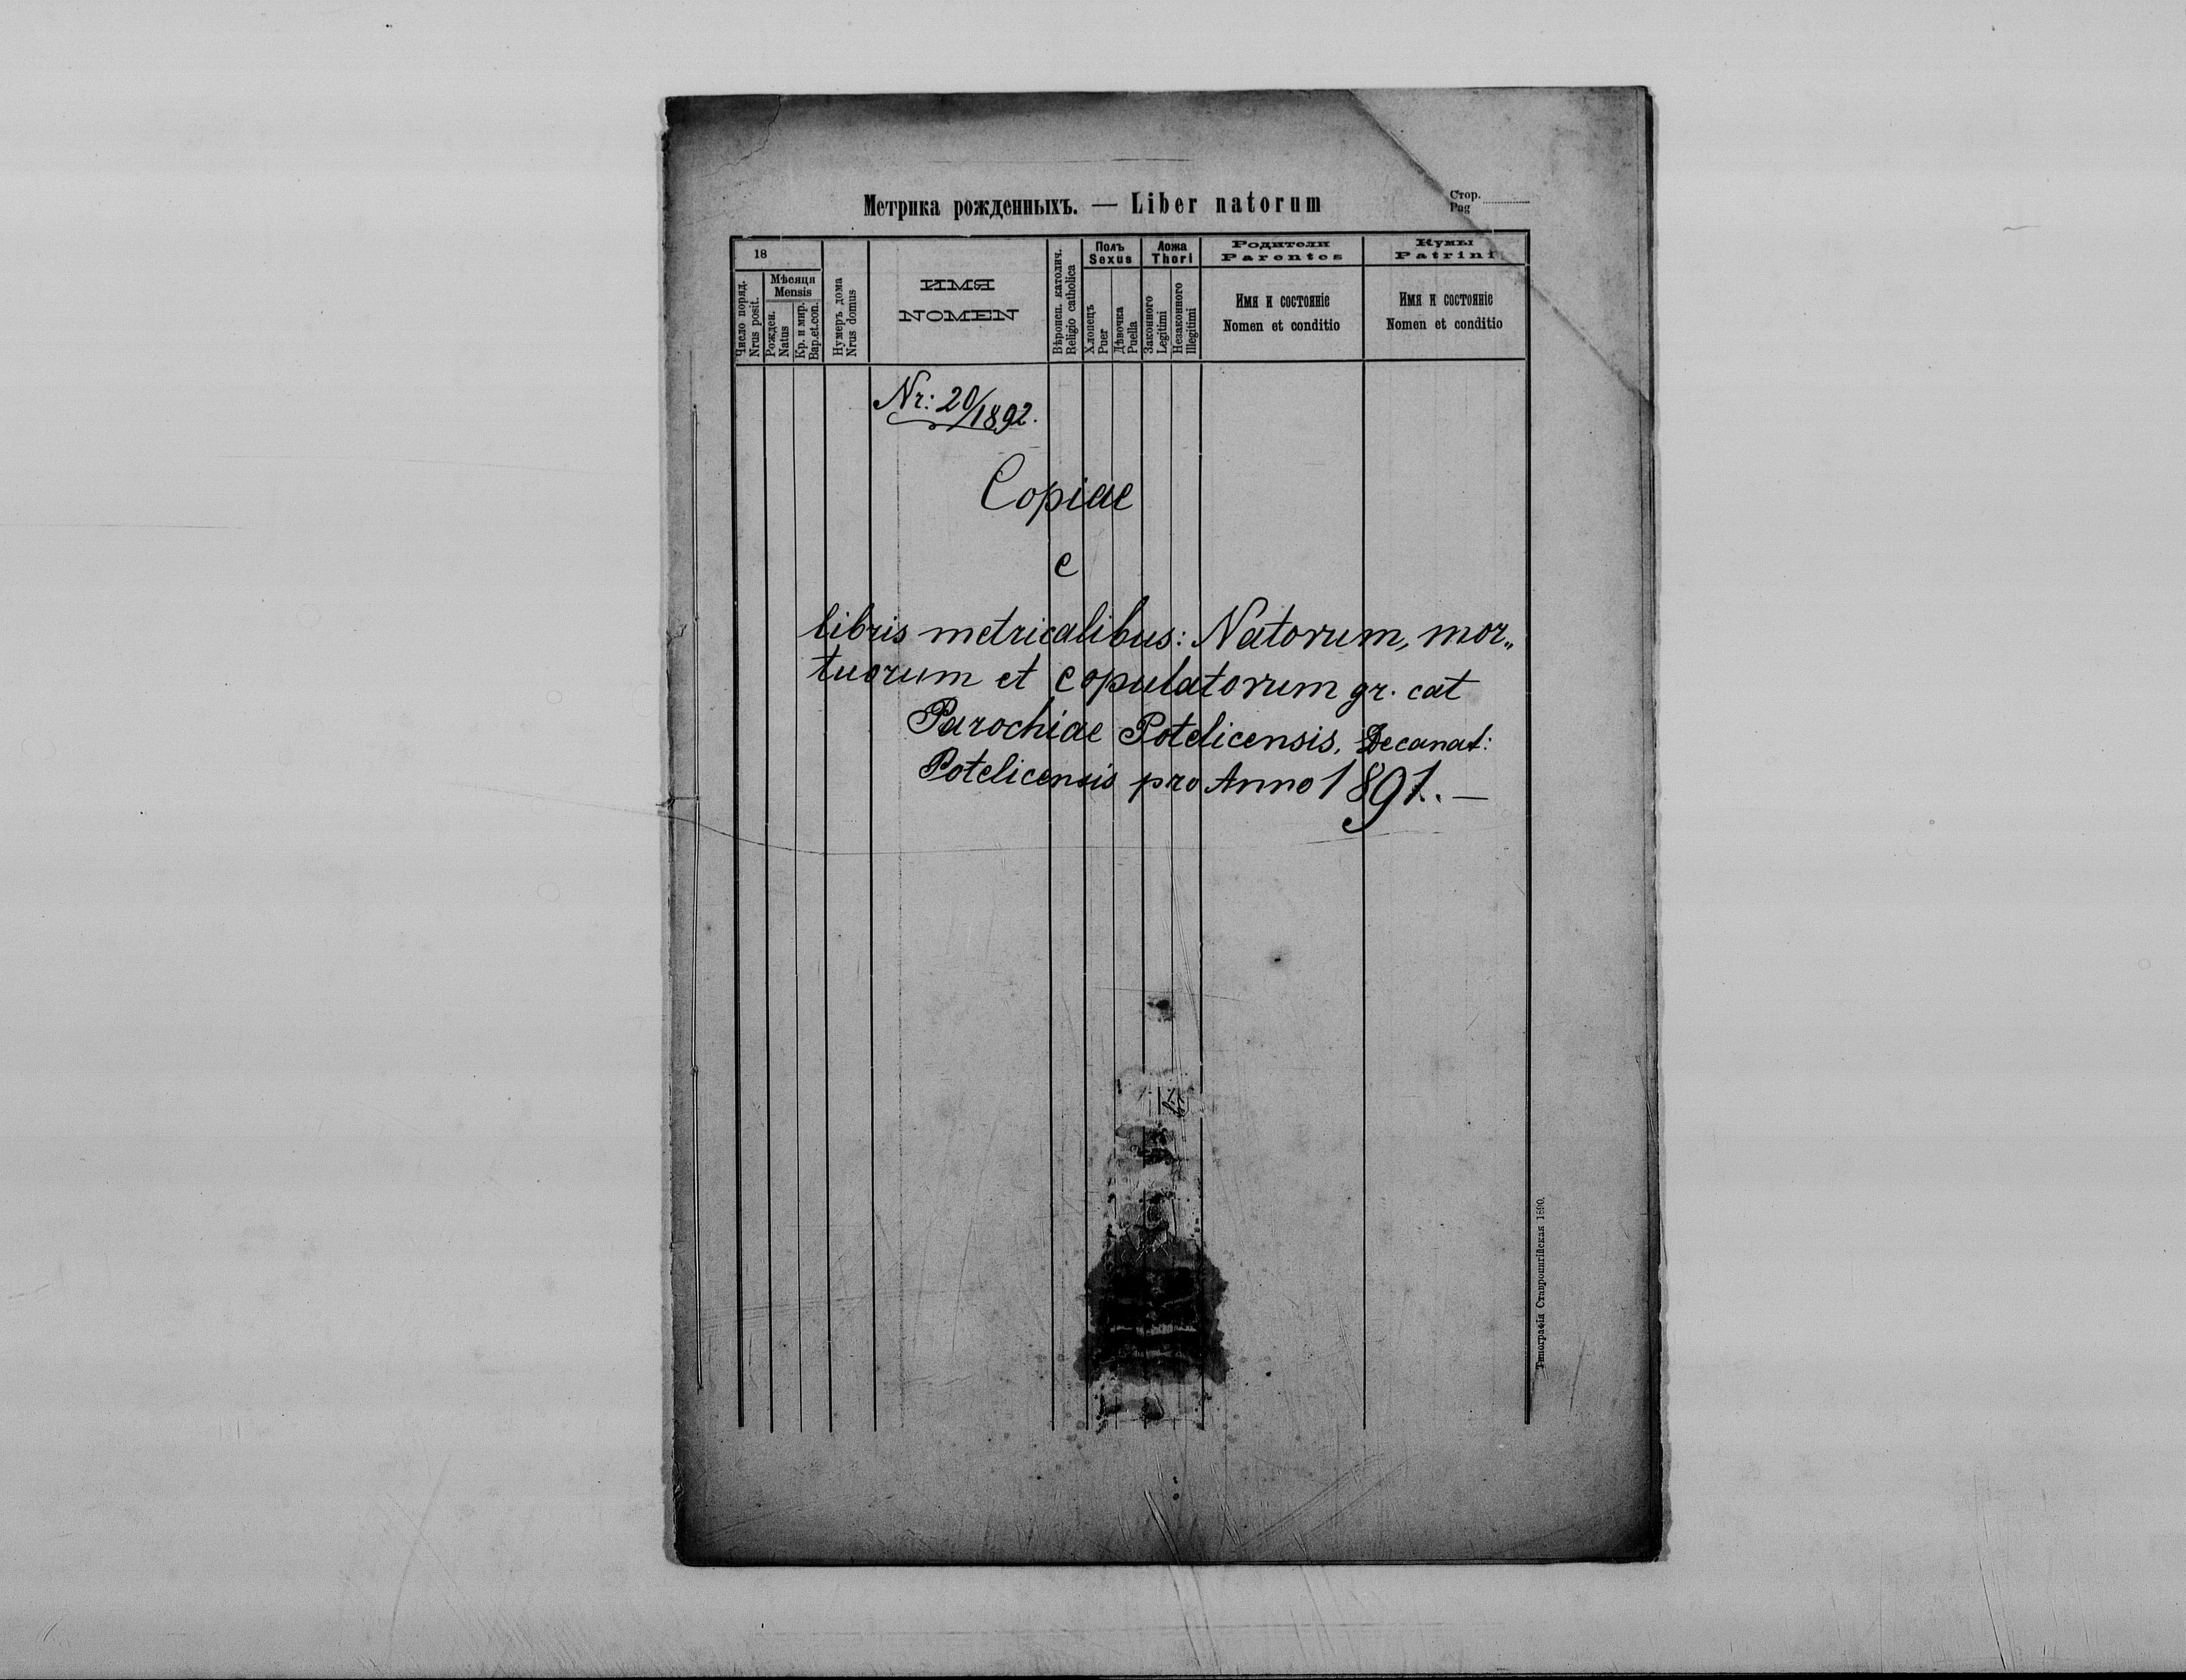 Метрика рожденныхъ. — Liber natorum
Стор.
Pag
18
Число поряд.
Nrus posit.
Мѣсяця
Mensis
Рожден.
Natus
Кр. и мир.
Bap.et.con.
Нумеръ дома
Nrus domus
ИМЯ
NOMEN
Вѣроисп. католич.
Religio catholica
Полъ
Sexus
Хлопецъ
Puer
Дѣвочка
Puella
Ложа
Thori
Законного
Legitimi
Незаконного
Illegitimi
Родители
Parentes
Имя и состояніе
Nomen et conditio
Кумы
Patrini
Имя и состояніе
Nomen et conditio
Nr: 20/1892.
Copiae
e
libris metricalibus: Natorum, mor„
tuorum et copulatorum gr. cat
Parochiae Potelicensis, Decanat:
Potelicensis pro Anno 1891. —
Типографія Ставропигійская 1890.